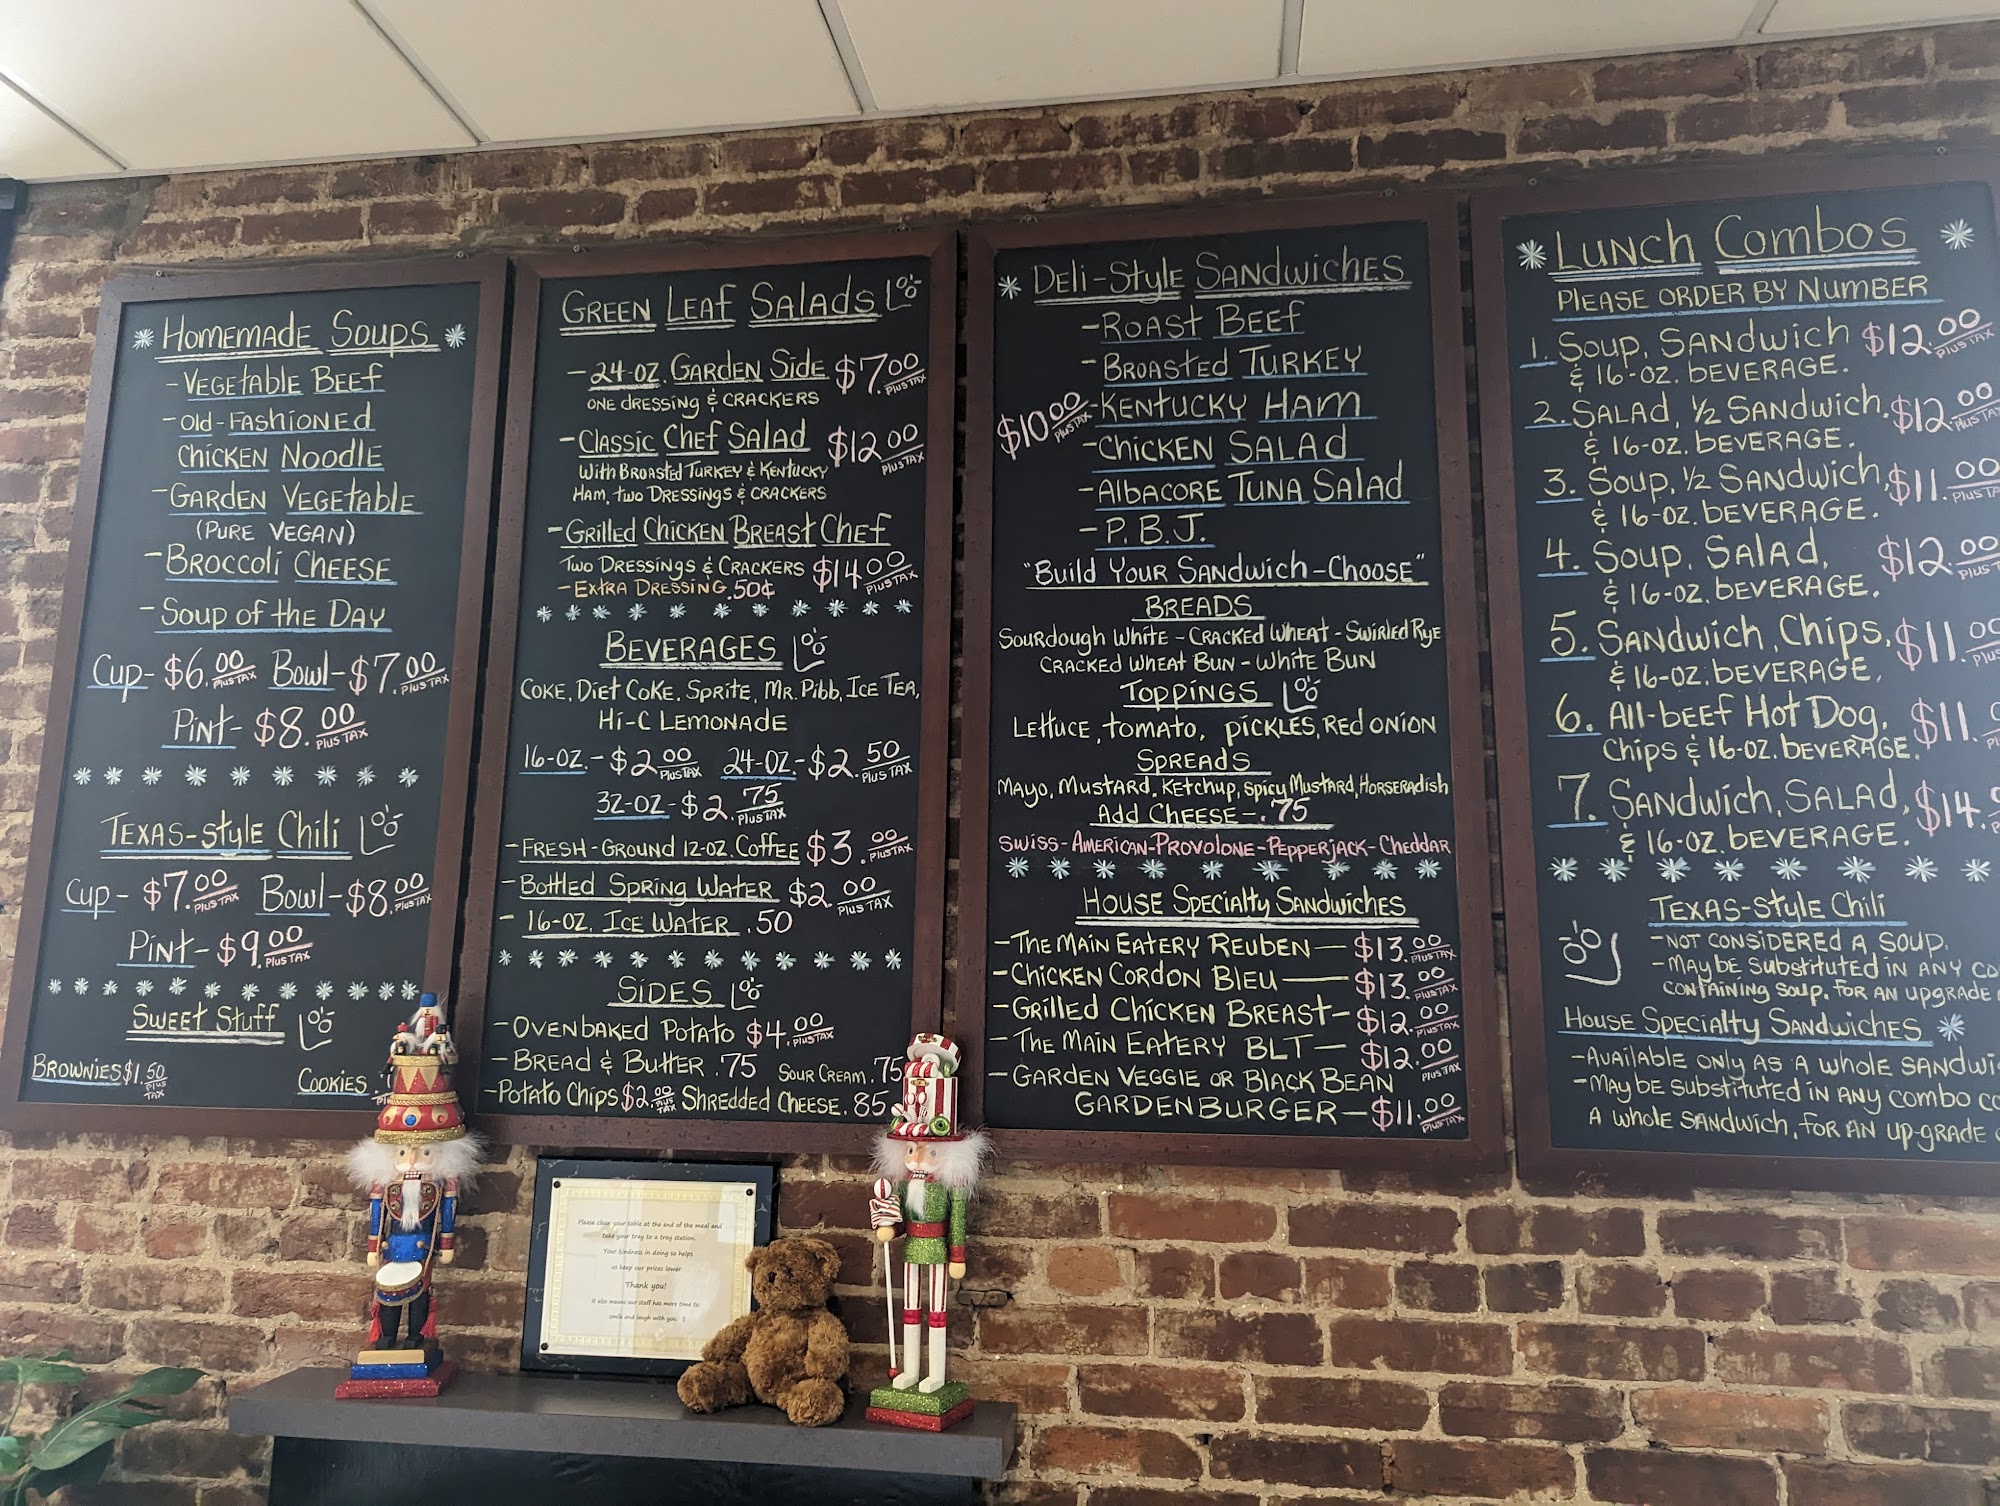 Homemade Soups
- Vegetable Beef
- Old-Fashioned
Chicken Noodle
- Garden Vegetable
(Pure Vegan)
- Broccoli Cheese
- Soup of the Day
Cup- $6.00 Plus Tax Bowl- $7.00 Plus Tax
Pint- $8.00 Plus Tax
Texas-Style Chili
Cup- $7.00 Plus Tax Bowl- $8.00 Plus Tax
Pint- $9.00 Plus Tax
Sweet Stuff
Brownies $1.50 Plus Tax Cookies
Green Leaf Salads
- 24-oz. Garden Side $7.00 Plus Tax
One Dressing & Crackers
- Classic Chef Salad $12.00 Plus Tax
With Broasted Turkey & Kentucky
Ham, Two Dressings & Crackers
- Grilled Chicken Breast Chef
Two Dressings & Crackers $14.00 Plus Tax
- Extra Dressing .50¢
Beverages
Coke, Diet Coke, Sprite, Mr. Pibb, Ice Tea,
Hi-C Lemonade
16-oz.- $2.00 Plus Tax 24-oz.- $2.50 Plus Tax
32-oz- $2.75 Plus Tax
- Fresh-Ground 12-oz. Coffee $3.00 Plus Tax
- Bottled Spring Water $2.00 Plus Tax
- 16-oz. Ice Water .50
Sides
- Ovenbaked Potato $4.00 Plus Tax
- Bread & Butter .75 Sour Cream .75
- Potato Chips $2.00 Plus Tax Shredded Cheese .85
Deli-Style Sandwiches
- Roast Beef
- Broasted Turkey
$10.00 Plus Tax - Kentucky Ham
- Chicken Salad
- Albacore Tuna Salad
- P.B.J.
"Build Your Sandwich-Choose"
Breads
Sourdough White - Cracked Wheat - Swirled Rye
Cracked Wheat Bun - White Bun
Toppings
Lettuce, Tomato, Pickles, Red Onion
Spreads
Mayo, Mustard, Ketchup, Spicy Mustard, Horseradish
Add Cheese - .75
Swiss-American-Provolone-Pepperjack-Cheddar
House Specialty Sandwiches
- The Main Eatery Reuben - $13.00 Plus Tax
- Chicken Cordon Bleu - $13.00 Plus Tax
- Grilled Chicken Breast - $12.00 Plus Tax
- The Main Eatery BLT - $12.00 Plus Tax
- Garden Veggie or Black Bean
Gardenburger - $11.00 Plus Tax
Lunch Combos
Please Order By Number
1. Soup, Sandwich $12.00 Plus Tax
& 16-oz. Beverage.
2. Salad, 1/2 Sandwich, $12.00 Plus Tax
& 16-oz. Beverage.
3. Soup, 1/2 Sandwich, $11.00 Plus Ta
& 16-oz. Beverage.
4. Soup, Salad, $12.00 Plus T
& 16-oz. Beverage.
5. Sandwich, Chips, $11.00 Plus
& 16-oz. Beverage.
6. All-Beef Hot Dog, $11.
Chips & 16-oz. Beverage.
7. Sandwich, Salad, $14.
& 16-oz. Beverage.
Texas-Style Chili
- Not Considered a Soup.
- May be Substituted in any co
containing soup, for an upgrade
House Specialty Sandwiches
- Available only as a whole sandwi
- May be substituted in any combo co
a whole sandwich, for an up-grade
Please clear your table at the end of the meal and
take your tray to a tray station.
Your kindness in doing so helps
us keep our prices lower.
Thank you!
It also means our staff has more time to
smile and laugh with you. :)